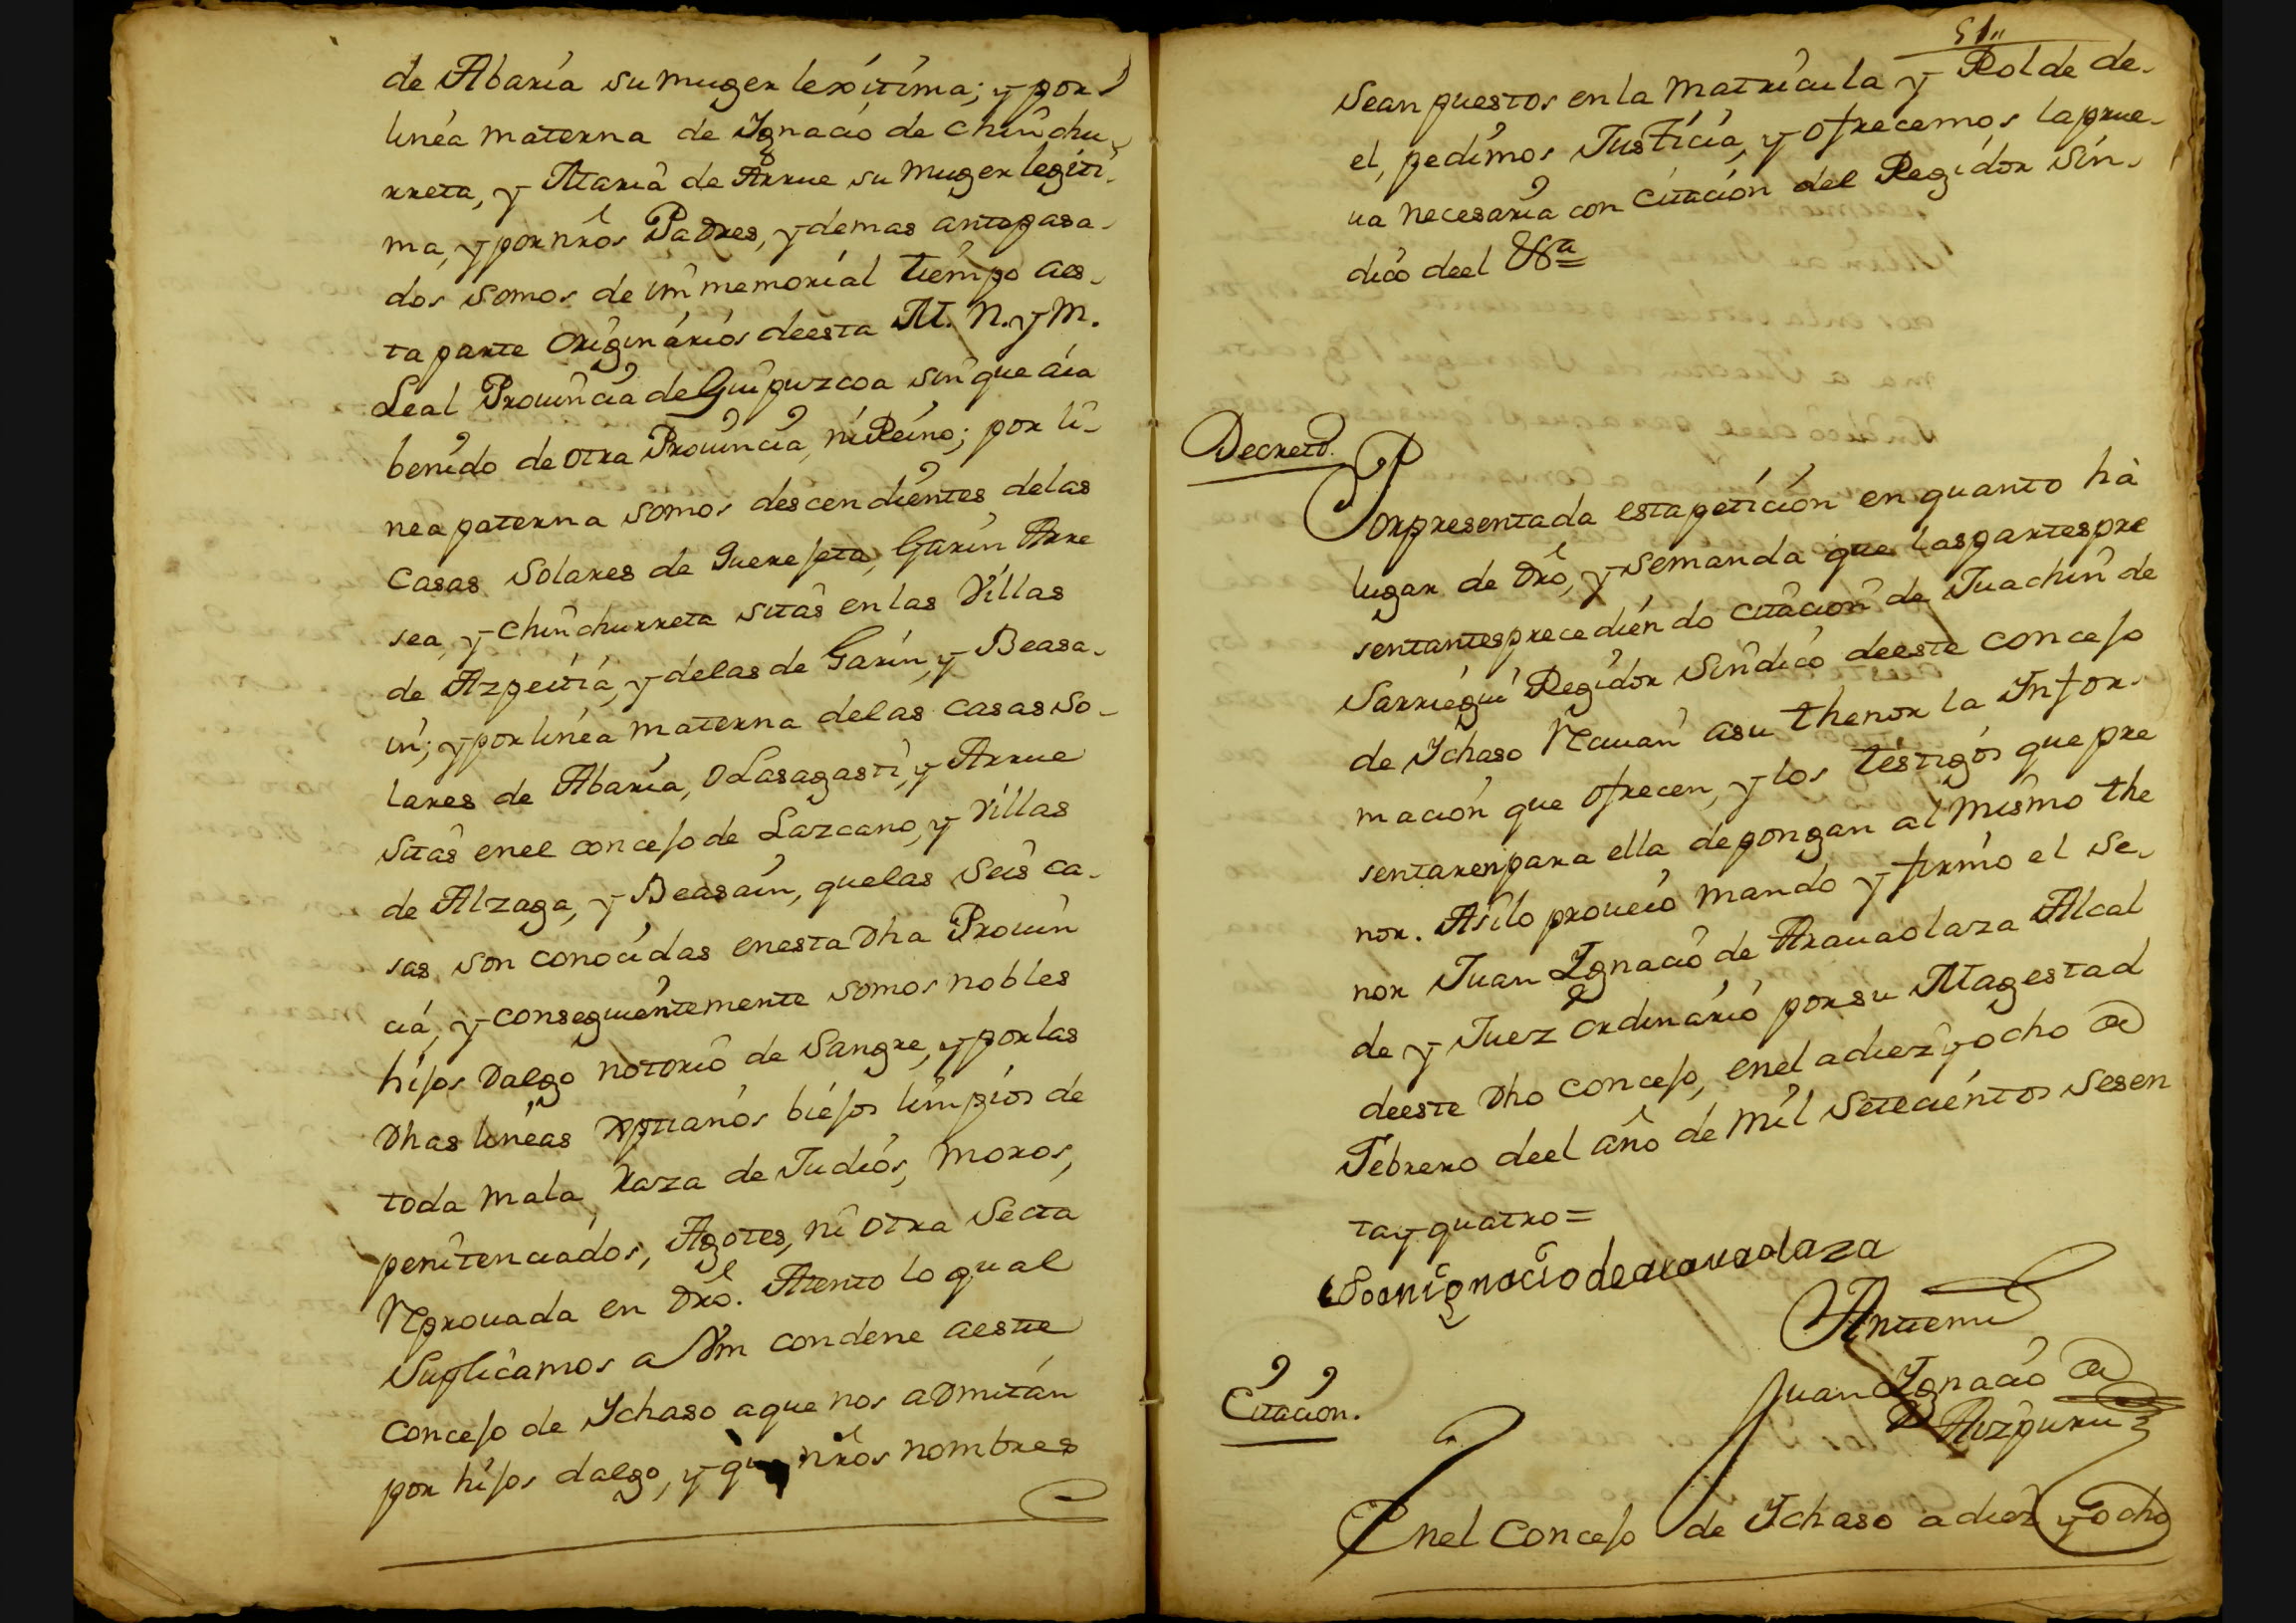 de Abaria su muger lexitima; y por
linea materna de Ygnacio de Chinchu
rreta, y Maria de Arrue su muger legiti-
ma, y por nrõs Padres, y demas antepasa-
dos somos de immemorial tiempo aes-
ta parte Originarios deesta M. N. y M.
Leal Prouincia de Guipuzcoa sin que aia
benido de otra Prouincia, ni Reino; por li-
nea paterna somos descendientes delas
Casas Solares de Guerejeta, Garin Arre
sea, y Chinchurreta sitas en las Villas
de Azpeitia, y delas de Garin, y Beasa-
in; y por linea materna delas casas so-
lares de Abaria, Olasagasti, y Arrue
Sitas enel concejo de Lazcano, y Villas
de Alzaga, y Beasain, quelas Seis ca-
sas son conocidas enesta Dha Prouin
cia, y conseguientemente somos nobles
hijos Dalgo notorio de Sangre, y por las
Dhas lineas xptianos biejos limpios de
toda mala Raza de Judios, moros,
penitenciados, Agotes, ni otra Secta
Reprouada en Drõ. Atento lo qual
Suplicamos a Vm condene aeste
Concejo de Ychaso aque nos admitan
por hijos dalgo, y que nrõs nombres
51
Sean puestos en la matricula y Rol de de-
el, pedimos Justicia, y ofrecemos la prue-
ua necesaria con Citacion del Regidor Sin-
dico deel Vᵃ
Decreto.
Por presentada esta peticion en quanto hà
lugar de Drõ, y se manda que las partes pre
sentantes precediendo citacion de Juachin de
Sarriegui Regidor Sindico deeste concejo
de Ychaso Reciuan asu thenor la Infor-
macion que ofrecen, y los testigos que pre
sentaren para ella depongan al mismo the
nor. Asilo proueio mando y firmo el Se-
nor Juan Ygnacio de Arauaolaza Alcal
de y Juez ordinario por su Magestad
deeste Dho concejo, enel adiez y ocho de
Febrero deel año de mil Setecientos Sesen
ta y quatro=
Joan ignacio de arauaolaza
Antemi
Juan Ygnacio de
Aizpuru
Citacion.
Enel Concejo de Ychaso a diez y ocho